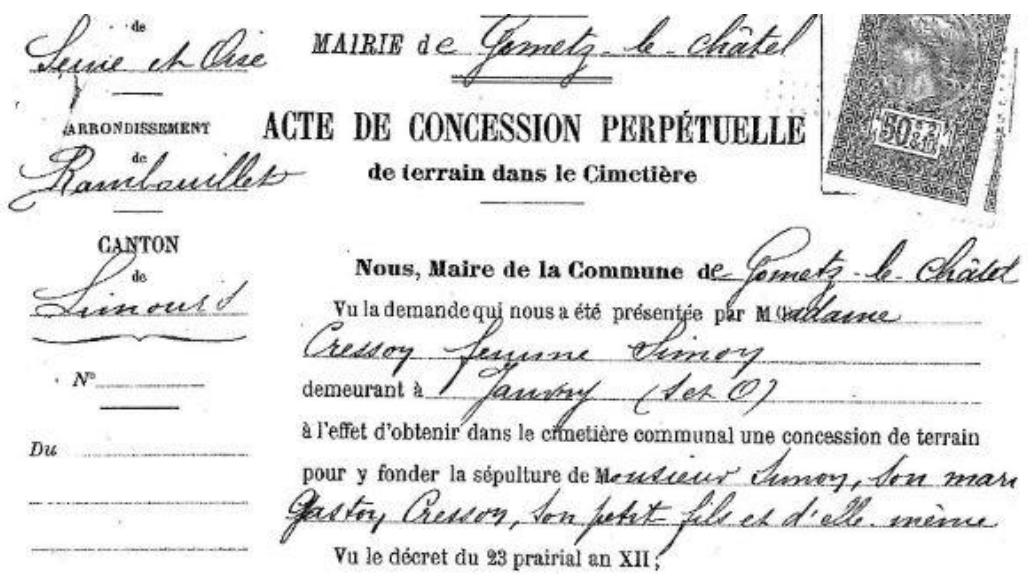 de
Seine et Oise
ARRONDISSEMENT
de
Rambouillet
CANTON
de
Limours
N°
Du
MAIRIE de Gometz-le-Châtel
ACTE DE CONCESSION PERPÉTUELLE
de terrain dans le Cimetière
50
Nous, Maire de la Commune de Gometz-le-Châtel
Vu la demande qui nous a été présentée par Madame
Cresson femme Simon
demeurant à Janvry (S et O)
à l'effet d'obtenir dans le cimetière communal une concession de terrain
pour y fonder la sépulture de Monsieur Simon, son mari
Gaston Cresson, son petit fils et d'elle-même
Vu le décret du 23 prairial an XII ;